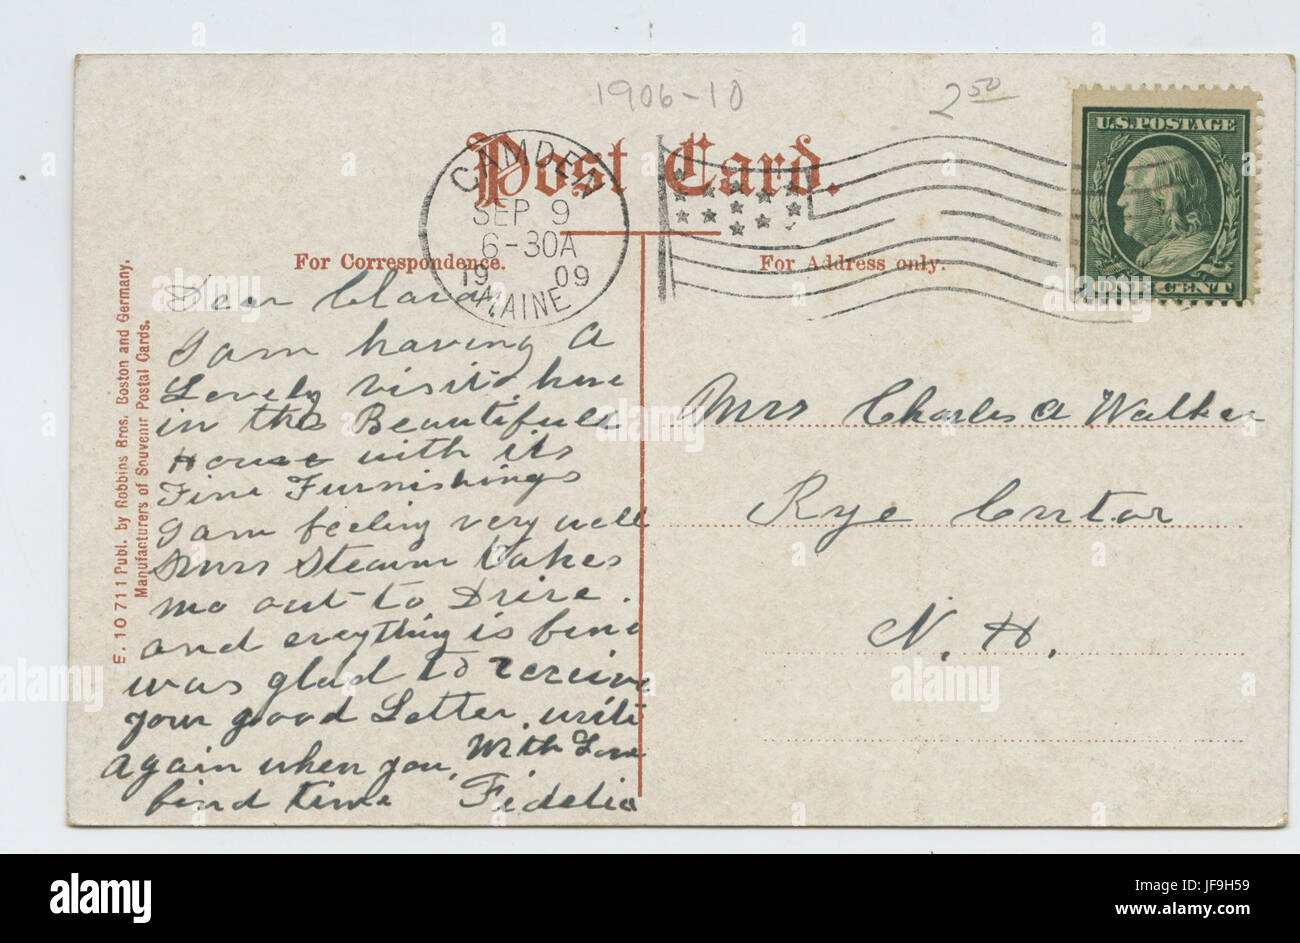 1906-10
2 50
Post Card.
CAMDEN
SEP 9
6-30A
1909
MAINE
U.S. POSTAGE
ONE CENT
For Correspondence.
For Address only.
E. 10 711 Publ. by Robbins Bros. Boston and Germany.
Manufacturers of Souvenir Postal Cards.
Dear Clara
I am having a
Lovely visit here
in this Beautifull
House with its
Fine Furnishings
I am feeling very well
Mrs Stearn takes
me out to Drive.
and everything is fine
was glad to receive
your good Letter. write
Again when you
find time
With Love
Fidelia
Mrs Charles A Walker
Rye Center
N. H.
alamy
alamy
Image ID: JF9H59
www.alamy.com